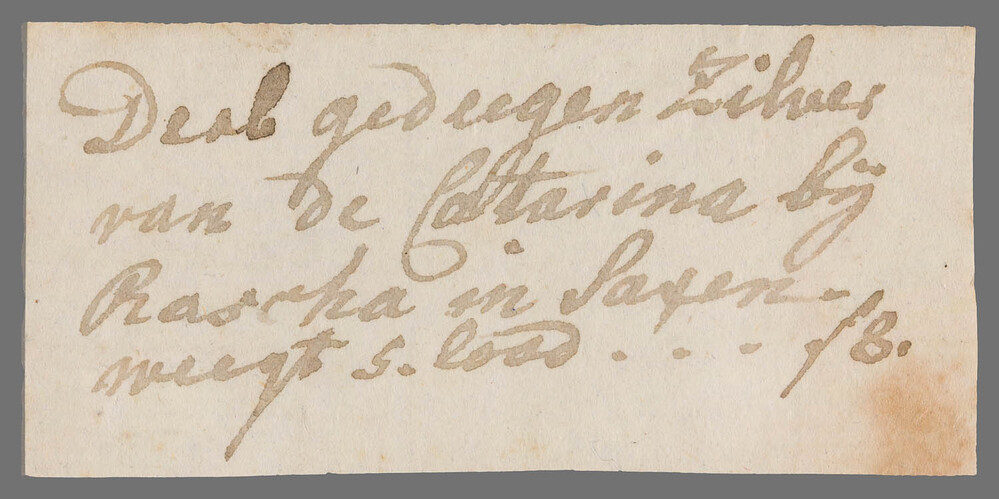 Derb gedeegen Zilver
van de Cattarina bij
Rascha in Saxen.
weegt 5. lood . . . f 8.